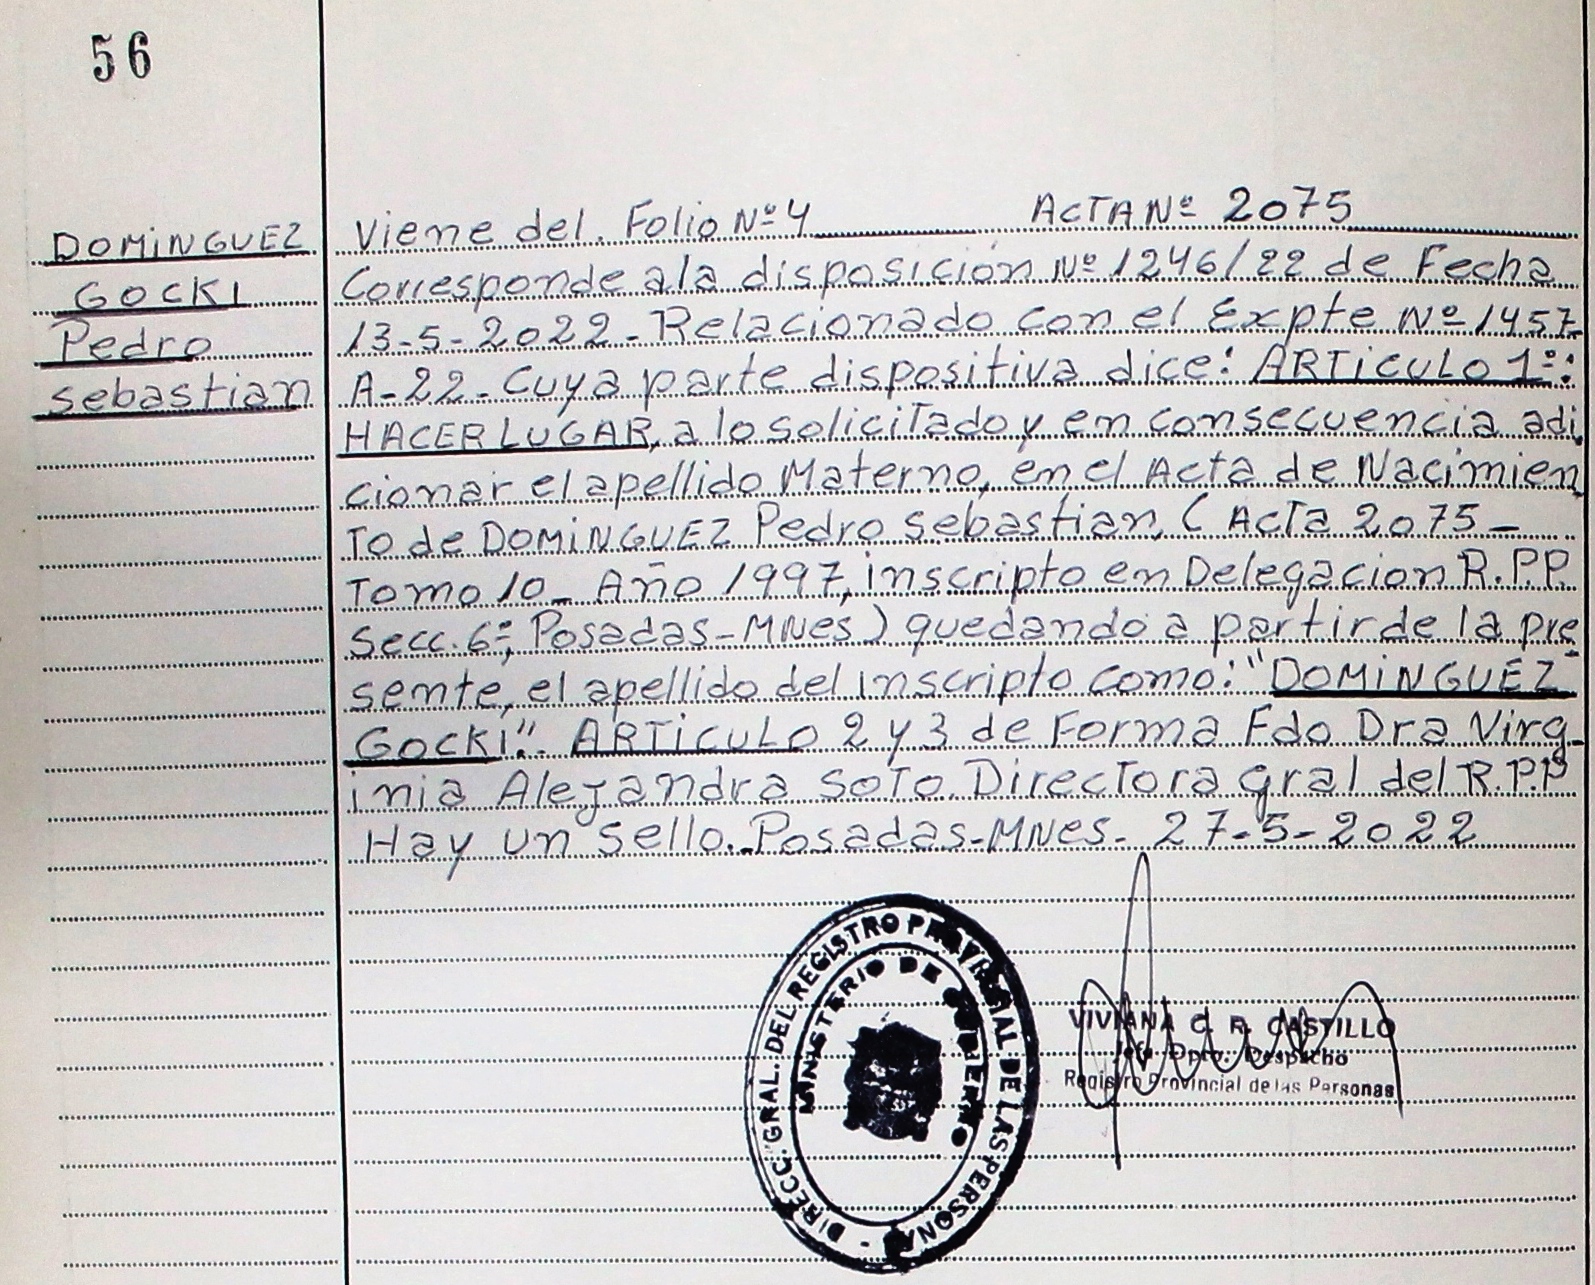 56
DOMINGUEZ
GOCKI
Pedro
sebastian
Viene del. Folio Nº 4 ACTA Nº 2075
Corresponde a la disposición Nº 1246/22 de Fecha
13-5-2022- Relacionado con el Expte Nº 1457-
A-22- Cuya parte dispositiva dice: ARTICULO 1º:
HACER LUGAR, a lo solicitado y en consecuencia adi
cionar el apellido Materno, en el Acta de Nacimien
To de DOMINGUEZ Pedro Sebastian, (Acta 2075-
Tomo 10- Año 1997, inscripto en Delegacion R.P.P.
Secc. 6º, Posadas-MNes) quedando a partir de la pre
sente, el apellido del inscripto como: "DOMINGUEZ
GOCKI". ARTICULO 2 y 3 de Forma Fdo Dra Virg-
inia Alejandra Soto. Directora gral del R.P.P
Hay un Sello.-Posadas-MNes- 27-5-2022
DIRECC. GRAL. DEL REGISTRO PROVINCIAL DE LAS PERSONAS -
MINISTERIO DE GOBIERNO
VIVIANA C. R. CASTILLO
Jefe Dpto. Despacho
Registro Provincial de las Personas